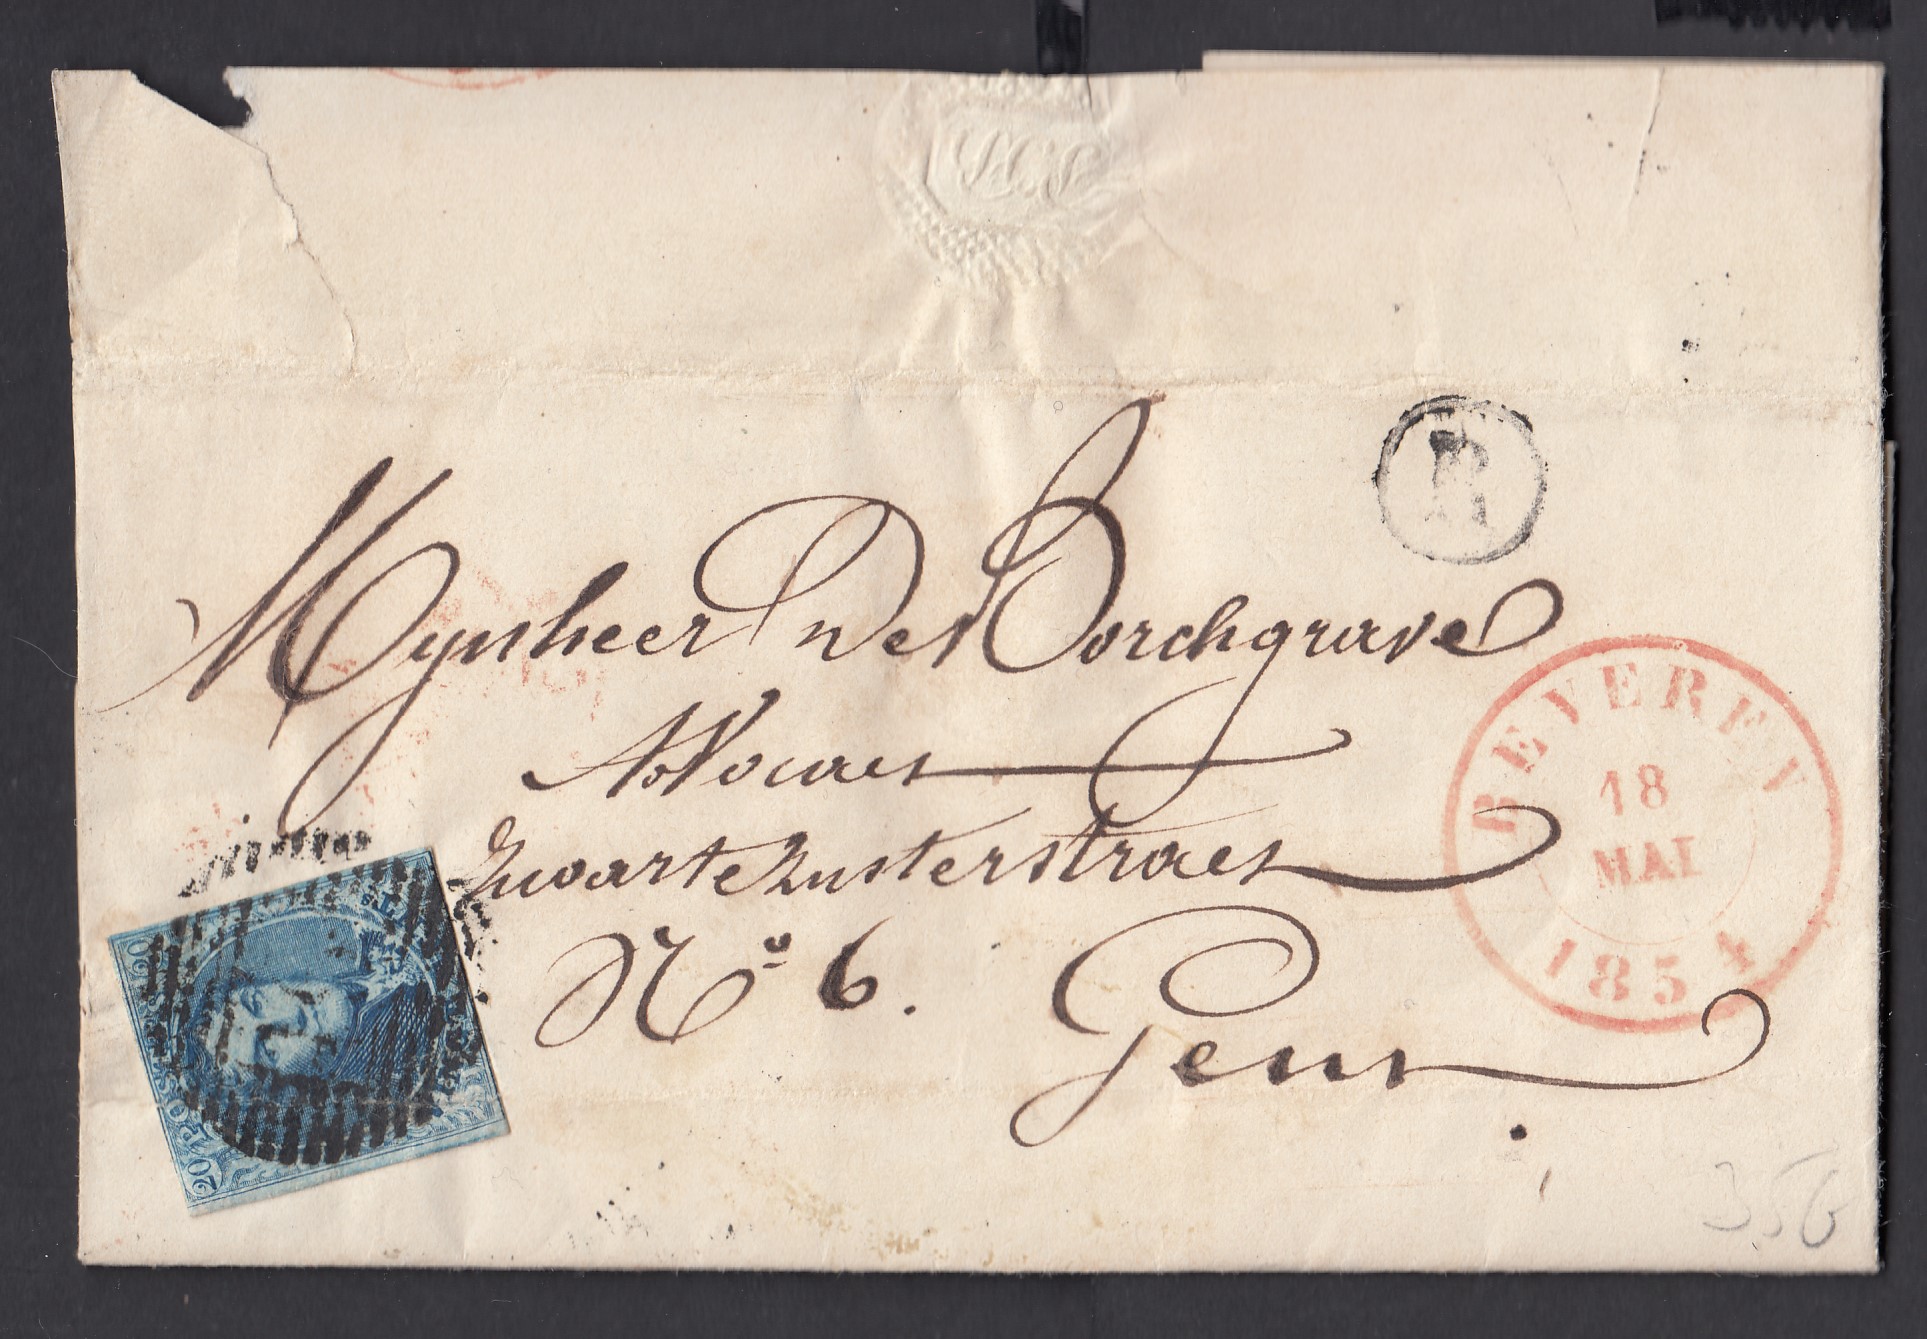 R
Mynheer De Borchgrave
Advocaet
Zwartezusterstraet
N° 6. Gent
BEVEREN
18
MAI
1854
20
POSTES
20
356